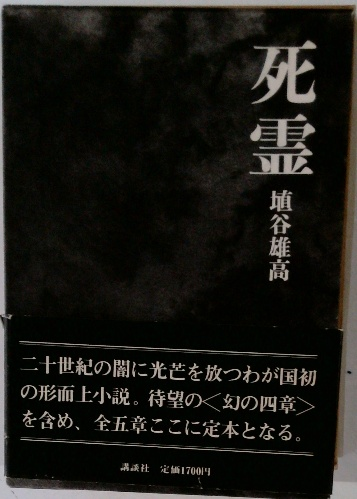 死霊
埴谷雄高
二十世紀の闇に光芒を放つわが国初
の形而上小説。待望の＜幻の四章＞
を含め、全五章ここに定本となる。
講談社 定価1700円